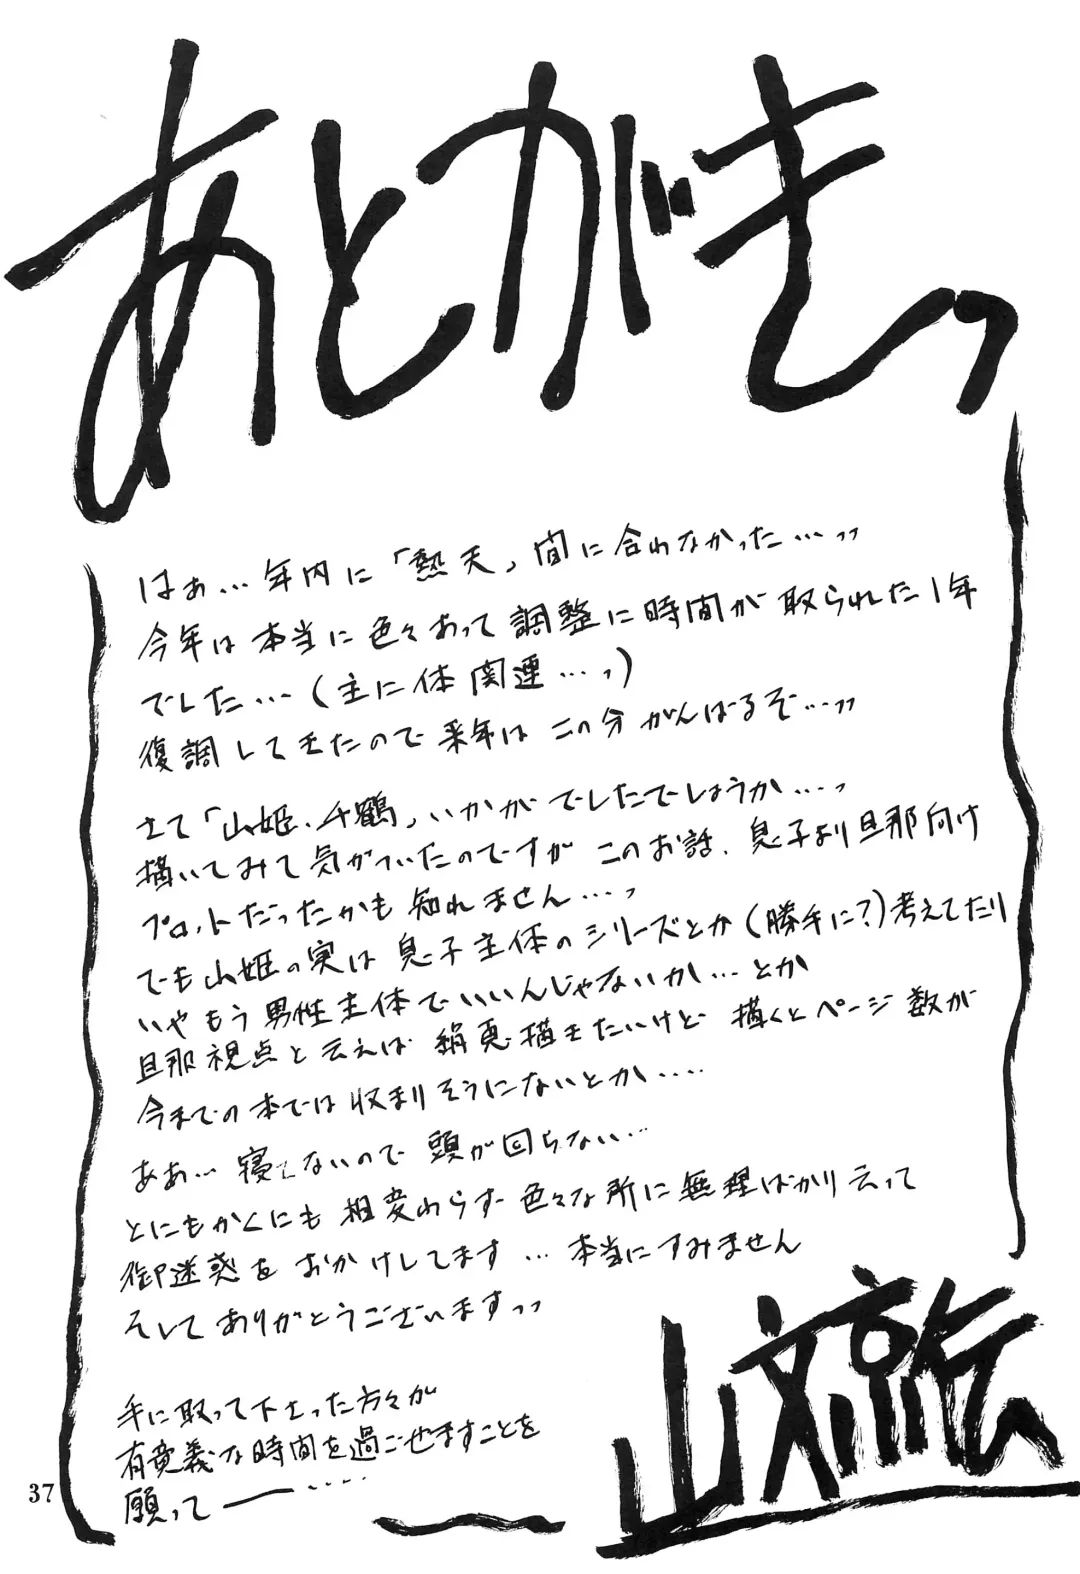 あとがきっ
はぁ…年内に「熱天」間に合わなかった…ッッ
今年は本当に色々あって調整に時間が取られた1年
でした…(主に体関連…ッ)
復調してきたので来年はこの分がんばるぞ…ッッ
さて「山姫.千鶴」いかがでしたでしょうか…ッ
描いてみて気がついたのですがこのお話、息子より旦那向け
プロットだったかも知れません…ッ
でも山姫の実は息子主体のシリーズとか(勝手に?)考えてたり
いやもう男性主体でいいんじゃないか…とか
旦那視点と云えば絹恵描きたいけど描くとページ数が
今までの本では収まりそうにないとか‥‥
ああ…寝てないので頭が回らない…
とにもかくにも相変わらず色々な所に無理ばかり云って
御迷惑をおかけしてます…本当にすみません
そしてありがとうございますッッ
手に取って下さった方々が
有意義な時間を過ごせますことを
願って――‥‥‥
山文京伝
37